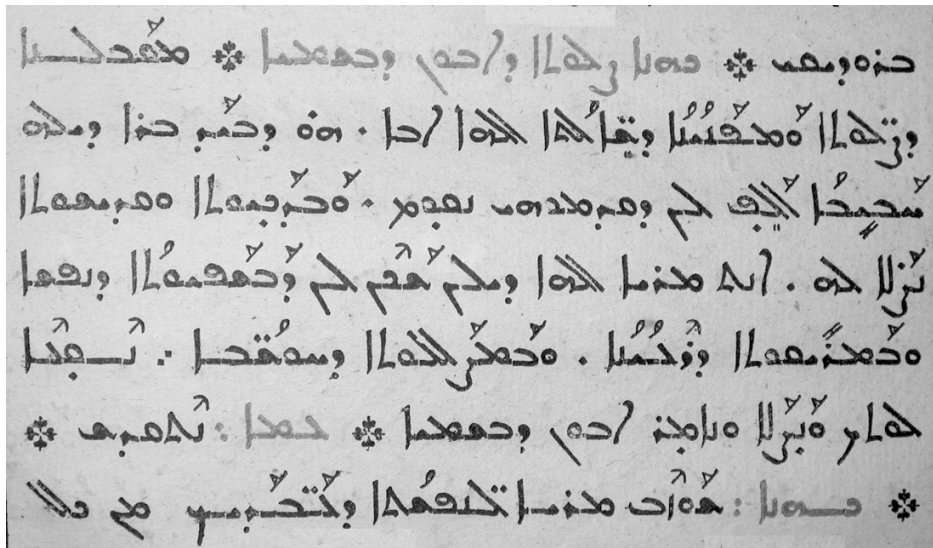 ܒܪܘܕܝܩܝ ܀ ܟܗܢܐ ܨܠܘܬܐ ܕܐܒܘܢ ܕܒܫܡܝܐ ܀ ܡܩܰܒܠܢܐ
ܕܨ̈ܠܘܬܐ ܘܰܡܦܰܢܝܳܢܳܐ ܕܫܶܐ̈ܠܳܬܐ ܐܠܗܐ ܐܒܐ ܂ ܗܘ̇ ܕܒܰܝܕ ܒܪܐ ܕܝܠܗ
ܚܰܒܝܒܳܐ ܐܰܠܶܦ ܠܢ ܕܩܕܡܘܗܝ ܢܩܘܡ ܂ ܘܰܒܕܰܟܝܘܬܐ ܘܩܕܝܫܘܬܐ
ܢܰܨܠܐ ܠܗ ܂ ܐܢܬ ܡܪܝܐ ܐܠܗܐ ܕܝܠܢ ܫܰܟܶܢ ܠܢ ܕܰܒܫܰܦܝܘܬܳܐ ܕܢܦܫܐ
ܘܒܰܡܪܺܝܩܘܬܐ ܕܪܶܥܝܳܢܳܐ ܂ ܘܒܰܡܨܰܠܠܘܬܐ ܕܚܘܫܳܒ̈ܐ ܂
ܠܘܬܟ ܘܰܢܨܰܠܐ ܘܢܐܡܪ ܐܒܘܢ ܕܒܫܡܝܐ ܀ ܥܡܐ : ܢܶܬܩܕܫ ܀
܀ ܟܗܢܐ : ܫܰܘܙܶܒ ܡܪܝܐ ܠܢܦ̈ܫܳܬܐ ܕܥܰܒܕ̈ܰܝܟ ܡܢ ܟܠ